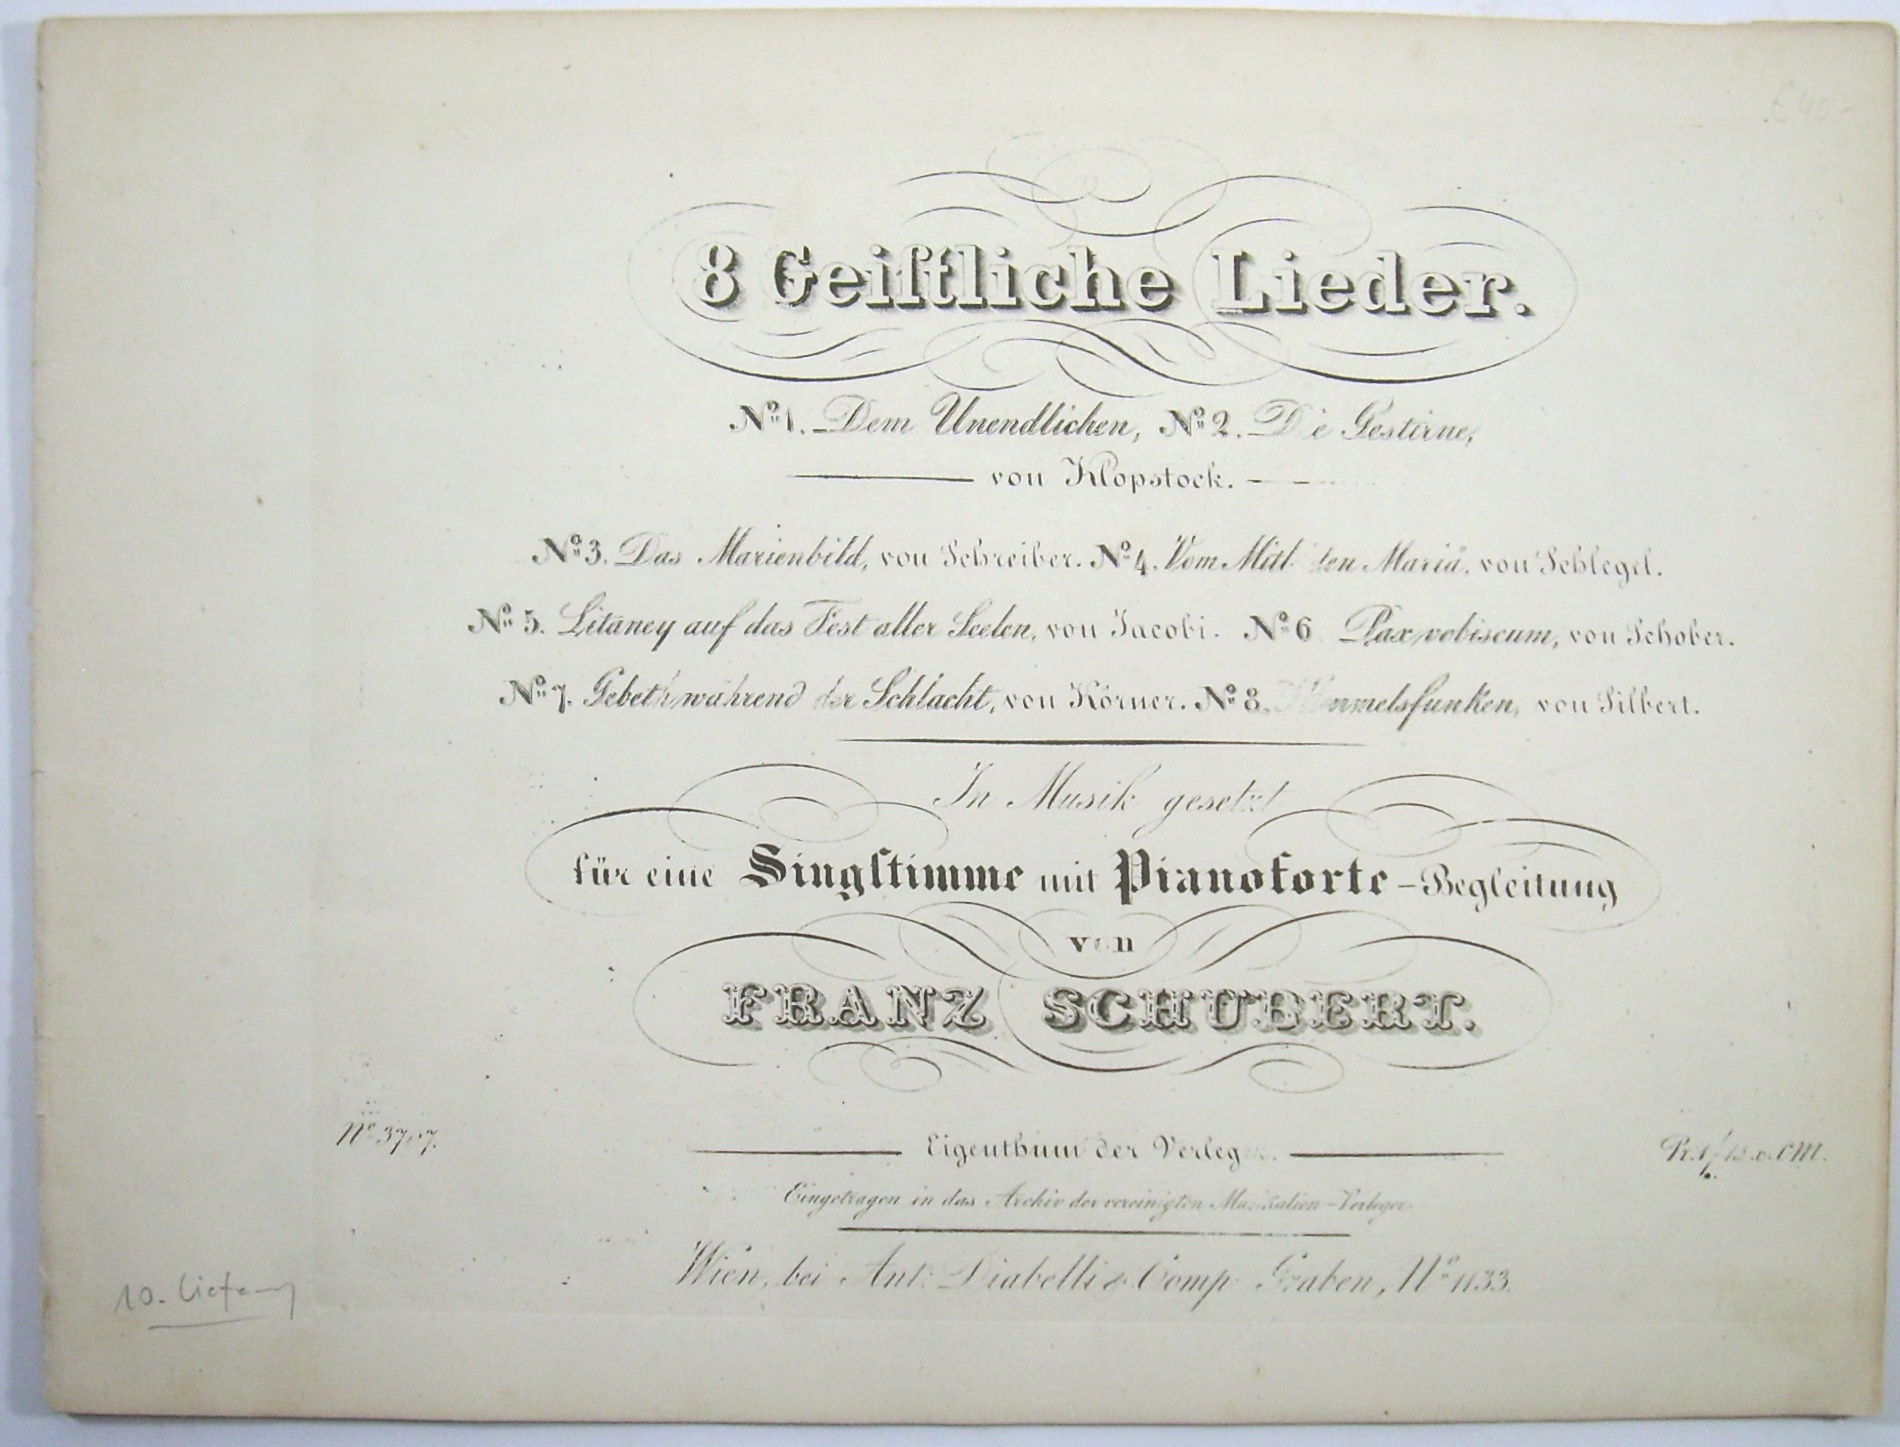 8 Geiſtliche Lieder.
No. 1. Dem Unendlichen, No. 2. Die Gestirne,
von Klopstock.
No. 3. Das Marienbild, von Schreiber. No. 4. Vom Mitleiden Mariä, von Schlegel.
No. 5. Litaney auf das Fest aller Seelen, von Jacobi. No. 6 Pax vobiscum, von Schober.
No. 7. Gebeth während der Schlacht, von Körner. No. 8. Himmelsfunken, von Silbert.
In Musik gesetzt
für eine Singſtimme mit Pianoforte-Begleitung
von
FRANZ SCHUBERT.
No. 3707. Eigenthum der Verleger.
Eingetragen in das Archiv der vereinigten Musikalien-Verleger.
Wien, bei Ant. Diabelli & Comp. Graben, No. 1133.
10. Lieferung